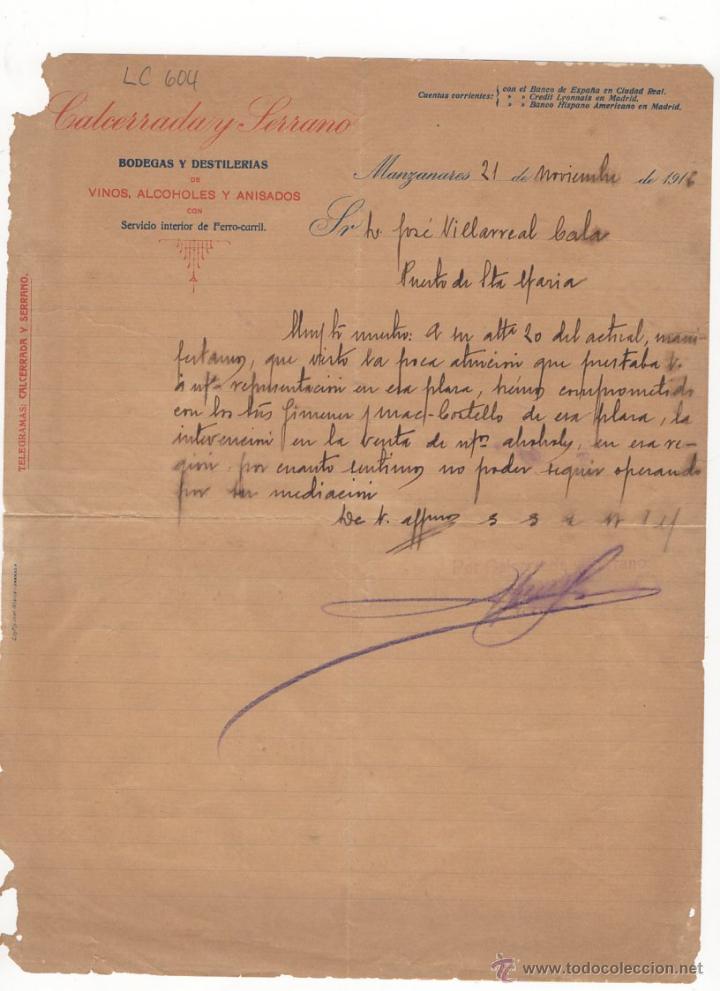 LC 604
Calcerrada y Serrano
Cuentas corrientes: con el Banco de España en Ciudad Real.
» » Credit Lyonnais en Madrid.
» » Banco Hispano Americano en Madrid.
BODEGAS Y DESTILERIAS
DE
VINOS, ALCOHOLES Y ANISADOS
CON
Servicio interior de Ferro-carril.
Manzanares 21 de Noviembre de 1916
Sr D. José Villarreal Cala
Puerto de Sta Maria
TELEGRAMAS: CALCERRADA Y SERRANO.
Muy Sr nuestro: A su atta 20 del actual, mani-
festamos, que visto la poca atención que prestaba V.
a nra representación en esa plaza, hemos comprometido
con los Sres Gimenez y Mac-Costello de esa plaza, la
intervención en la venta de nros alcoholes, en esa re-
gión, por cuanto sentimos no poder seguir operando
por su mediación
De V. affmos S S
Por Calcerrada y Serrano
www.todocoleccion.net